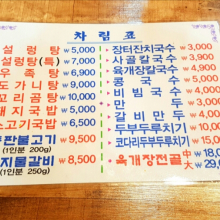 차 림 표
설 렁 탕 ₩ 5,000
설렁탕(특) ₩ 7,000
우 족 탕 ₩ 6,000
도 가 니 탕 ₩ 9,000
꼬 리 곰 탕 ₩ 9,000
돼 지 국 밥 ₩ 5,000
소고기국밥 ₩ 6,500
판불고기 ₩ 9,500
(1인분 200g)
지물갈비 ₩ 8,500
(1인분 250g)
장터잔치국수 ₩ 3,000
사 골 칼 국 수 ₩
육개장칼국수 ₩
콩 국 수 ₩
비 빔 국 수 ₩
만 두 ₩
갈 비 만 두 ₩
두부두루치기 ₩ 10,
코다리두부두루치기 ₩ 15,
육개장전골 中 ₩ 18,0
大 ₩ 29,